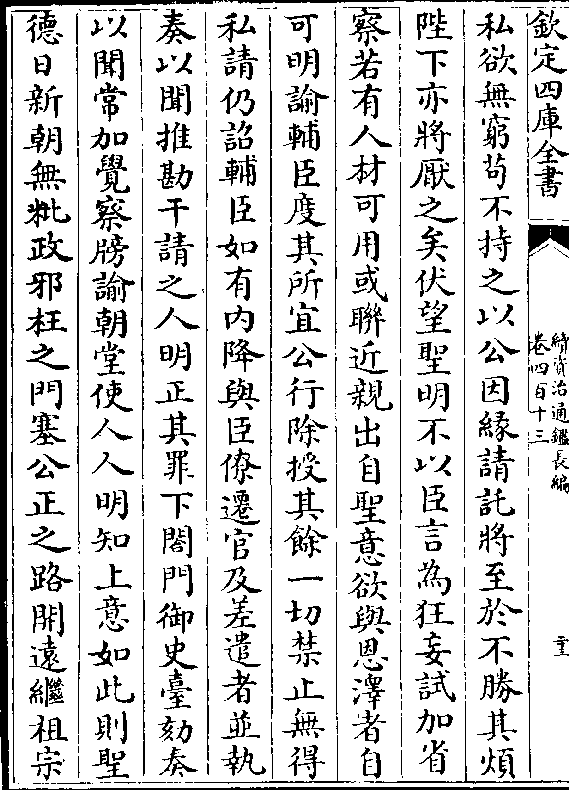 欽定四庫全書
續資治通鑑長編
卷四百十三
私欲無窮苟不持之以公因緣請託將至於不勝其煩
陛下亦將厭之矣伏望聖明不以臣言為狂妄試加省
察若有人材可用或聯近親出自聖意欲與恩澤者自
可明諭輔臣度其所宜公行除授其餘一切禁止無得
私請仍詔輔臣如有内降與臣僚遷官及差遣者並執
奏以聞推勘干請之人明正其罪下閤門御史臺劾奏
以聞常加覺察牓諭朝堂使人人明知上意如此則聖
德日新朝無粃政邪枉之門塞公正之路開遠繼祖宗